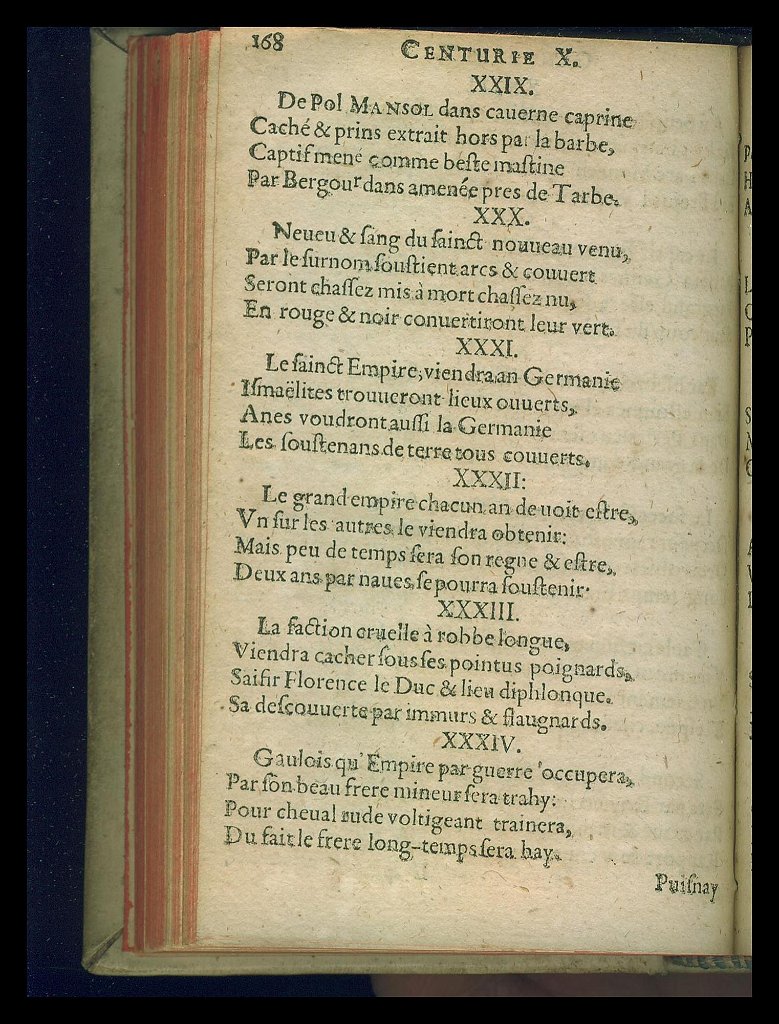 168
CENTURIE X.
XXIX.
De Pol MANSOL dans cauerne caprine
Caché & prins extrait hors par la barbe,
Captif mené comme beſte maſtine
Par Bergour dans amenée pres de Tarbe.
XXX.
Neueu & ſang du ſainct nouueau venu,
Par le ſurnom ſouſtient arcs & couuert
Seront chaſſez mis à mort chaſſez nu,
En rouge & noir conuertiront leur vert.
XXXI.
Le ſainct Empire, viendra an Germanie
Iſmaëlites trouueront lieux ouuerts,
Anes voudront auſſi la Germanie
Les ſouſtenans de terre tous couuerts.
XXXII:
Le grand empire chacun an de uoit eſtre,
Vn ſur les autres le viendra obtenir:
Mais peu de temps ſera ſon regne & eſtre,
Deux ans par naues ſe pourra ſouſtenir.
XXXIII.
La faction cruelle à robbe longue,
Viendra cacher ſous ſes pointus poignards,
Saiſir Florence le Duc & lieu diphlonque.
Sa deſcouuerte par immurs & flaugnards.
XXXIV.
Gaulois qu'Empire par guerre occupera,
Par ſon beau frere mineur ſera trahy:
Pour cheual rude voltigeant trainera,
Du fait le frere long-temps ſera hay.
Puiſnay